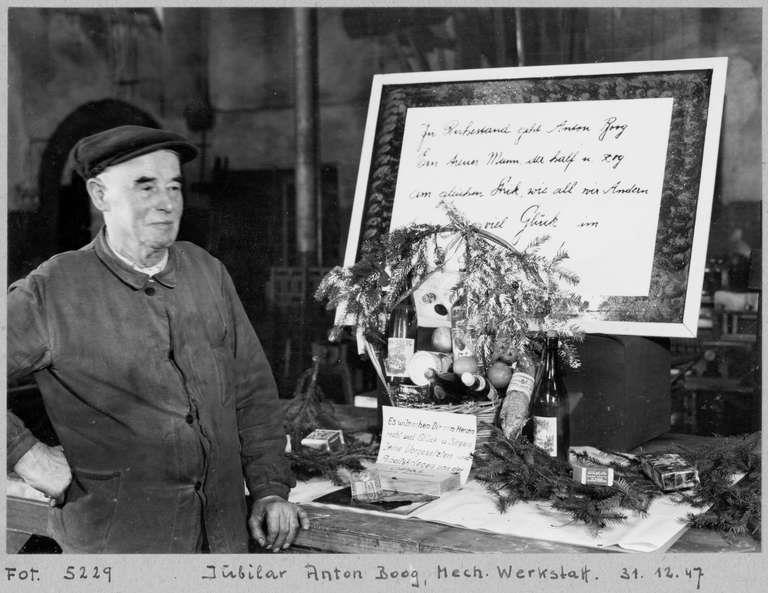 In Ruhestand geht Anton Boog
Ein treuer Mann, der half u. zog
am gleichen Strick, wie all wir Andern
viel Glück im
Es wünschen Dir von Herzen
recht viel Glück u. Segen
Deine Vorgesetzten und
Arbeitskollegen
Fot. 5229 Jubilar Anton Boog, Mech. Werkstatt. 31. 12. 47